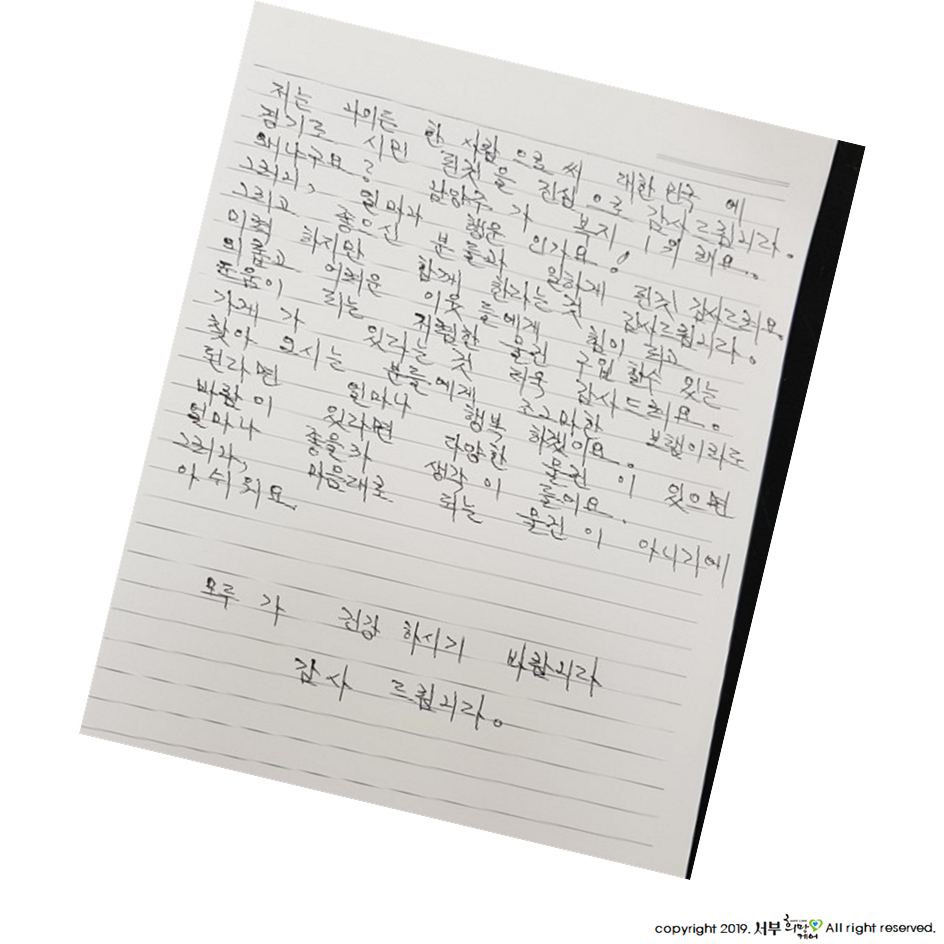 저는 과이든 한 사람 으로 써 대한 민국 에
경기도 시민 된것 을 진심 으로 감사 드립니다.
왜냐구요? 남양주 가 복지 1 위 래요..
그러니, 얼마나 행운 인가요!
그리고 좋으신 분 들과 일하게 된것 감사드려요.
미력 하지만 함께 한다는것 감사드립니다.
외롭고 어려운 이웃 들에게 힘이 되고
도움이 되는 저렴한 물건 구입 할수 있는
가게 가 있다는 것 더욱 감사드려요.
찾아 오시는 분들에게 조그마한 보탬이라도
된다면 얼마나 행복 하겠어요.
바람이 있다면 다양한 물건 이 있으면
얼마나 좋을까 생각 이 들어요.
그러나, 마음대로 되는 물건 이 아니기에
아쉬워요
모두 가 건강 하시기 바랍니다
감사 드립니다.
copyright 2019. 서부희망케어 All right reserved.